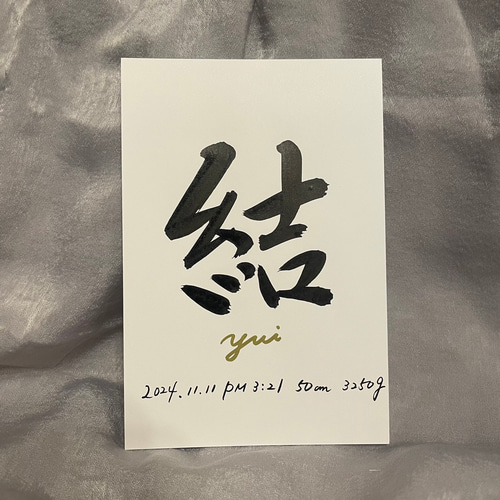 結
yui
2024.11.11 PM 3:21 50cm 3250g